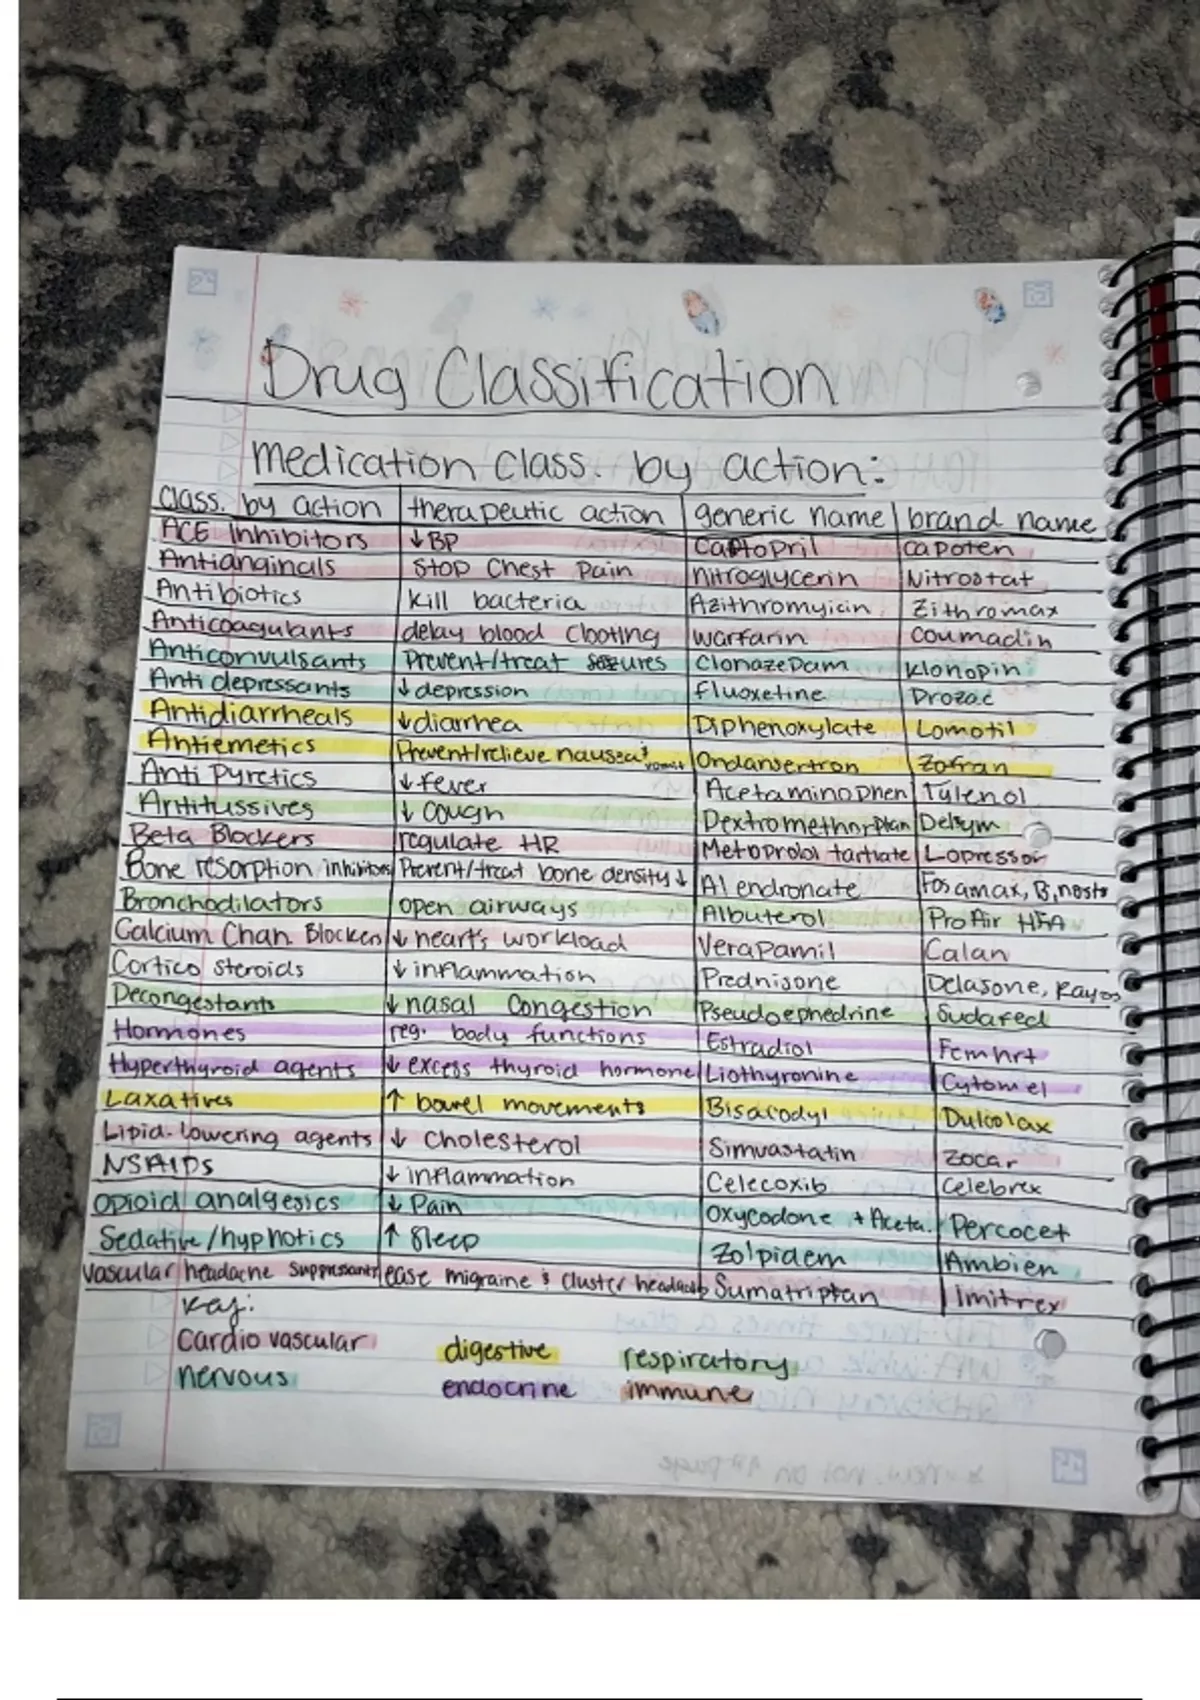 Drug Classification
medication class. by action:
class. by action therapeutic action generic name brand name
ACE Inhibitors ↓BP Captopril capoten
Antianginals Stop Chest Pain nitroglycerin Nitrostat
Antibiotics kill bacteria Azithromyicin Zithromax
Anticoagulants delay blood clooting warfarin coumadin
Anticonvulsants Prevent/treat seizures Clonazepam klonopin
Antidepressants ↓depression fluoxetine Prozac
Antidiarrheals ↓diarrhea Diphenoxylate Lomotil
Antiemetics Prevent/relieve nausea & vomit Ondansertron Zofran
Anti Pyretics ↓fever Acetaminophen Tylenol
Antitussives ↓ cough Dextromethorphan Delsym
Beta Blockers regulate HR Metoprolol tartiate Lopressor
Bone resorption inhibitors Prevent/treat bone density ↓ Alendronate Fosamax, Binosto
Bronchodilators open airways Albuterol ProAir HFA
Calcium Chan. Blockers ↓ heart's workload Verapamil Calan
Cortico steroids ↓ inflammation Prednisone Delasone, Rayos
Decongestants ↓ nasal congestion Pseudoephedrine Sudafed
Hormones reg. body functions Estradiol Femhrt
Hyperthyroid agents ↓ excess thyroid hormone Liothyronine Cytomel
Laxatives ↑ bowel movements Bisacodyl Dulcolax
Lipid-lowering agents ↓ Cholesterol Simvastatin zocar
NSAIDs ↓ inflammation Celecoxib Celebrex
Opioid analgesics ↓ Pain Oxycodone + Aceta. Percocet
Sedative/hypnotics ↑ Sleep Zolpidem Ambien
Vascular headache suppressants ease migraine & cluster headache Sumatriptan Imitrex
Key:
cardio vascular digestive respiratory
nervous endocrine immune